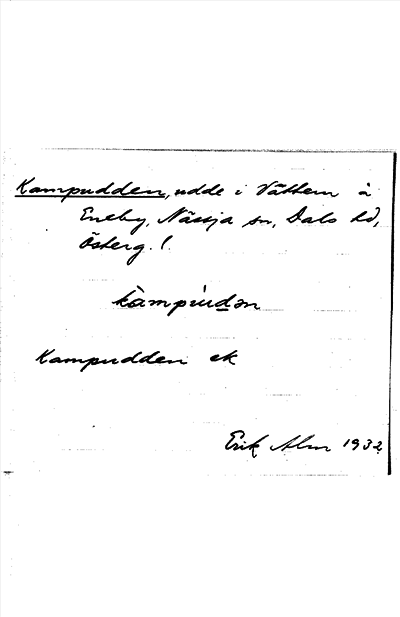 Kampudden, udde i Vättern å
Eneby, Nässja sn, Dals hd,
Österg. l.
kàmpùdən
Kampudden ek
Erik Alm 1932